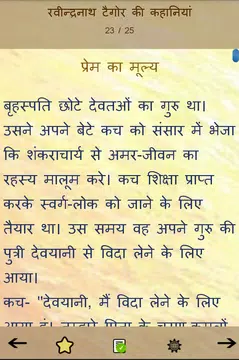 रवीन्द्रनाथ टैगोर की कहानियां
23 / 25
प्रेम का मूल्य
बृहस्पति छोटे देवतओं का गुरु था।
उसने अपने बेटे कच को संसार में भेजा
कि शंकराचार्य से अमर-जीवन का
रहस्य मालूम करे। कच शिक्षा प्राप्त
करके स्वर्ग-लोक को जाने के लिए
तैयार था। उस समय वह अपने गुरु की
पुत्री देवयानी से विदा लेने के लिए
आया।
कच- "देवयानी, मैं विदा लेने के लिए